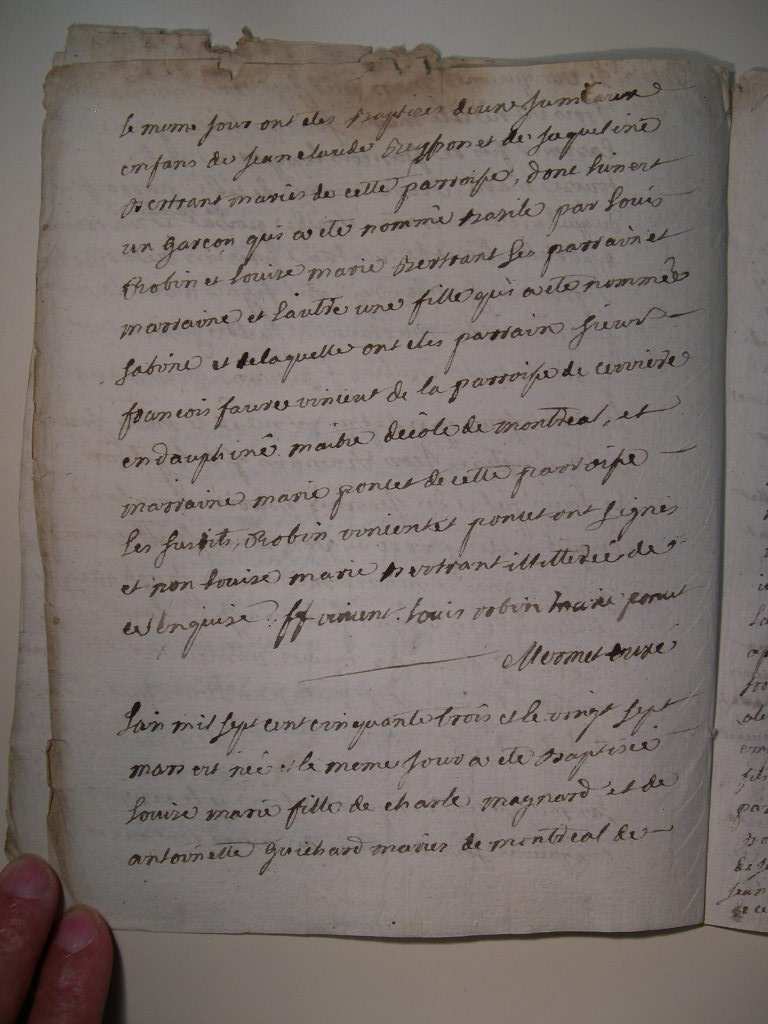 le meme jour ont etes Baptises deux jumeaux
enfans de jean claude et de jaqueline
Bertrant mariés de cette parroisse, dont l'un est
un garçon qui a ete nommé Basile par Louis
Robin et Louise marie Bertrant ses parrain et
marraine et l'autre une fille qui a ete nommée
sabine et de laquelle ont etes parrain sieur
françois faure vincent de la parroisse de cerviere
en dauphiné maitre décole de montreal, et
marraine marie poncet de cette parroisse
Les susdits Robin vincent et poncet ont signés
et non Louise marie Bertrant illitterée de
ce enquise. ff vincent. Louis robin marie poncet
Mermet curé
L'an mil sept cent cinquante trois et le vingt sept
mars est née et le meme jour a ete Baptisée
Louise marie fille de charle magnard et de
antoinette Guichard mariés de montreal de